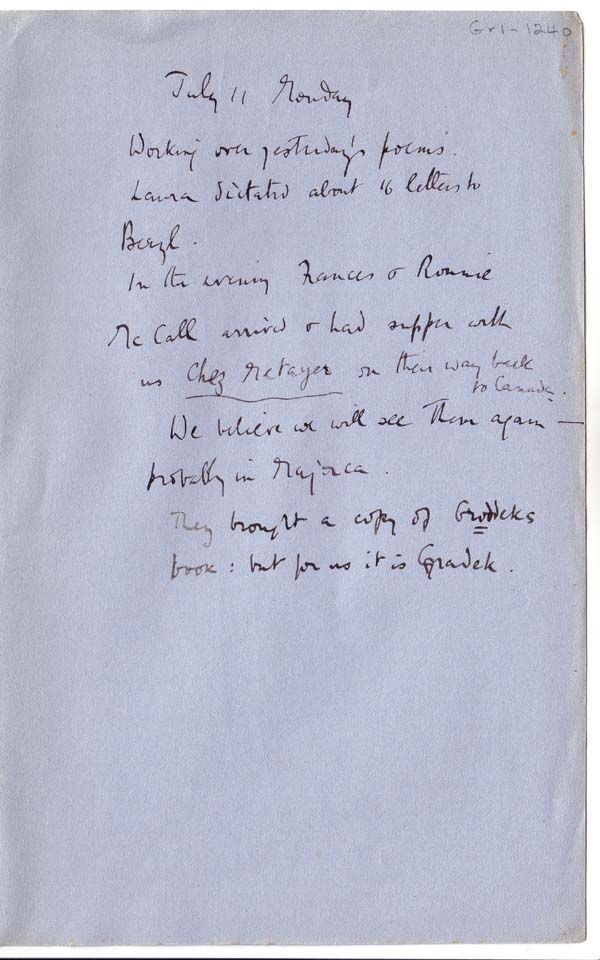 Gr1-1240
July 11 Monday
Working over yesterday's poems.
Laura dictated about 16 letters to
Beryl.
In the evening Frances & Ronnie
McCall arrived & had supper with
us Chez Metayer on their way back
to Canada.
We believe we will see them again —
probably in Majorca.
They brought a copy of Groddeks
book: but for us it is Gradek.